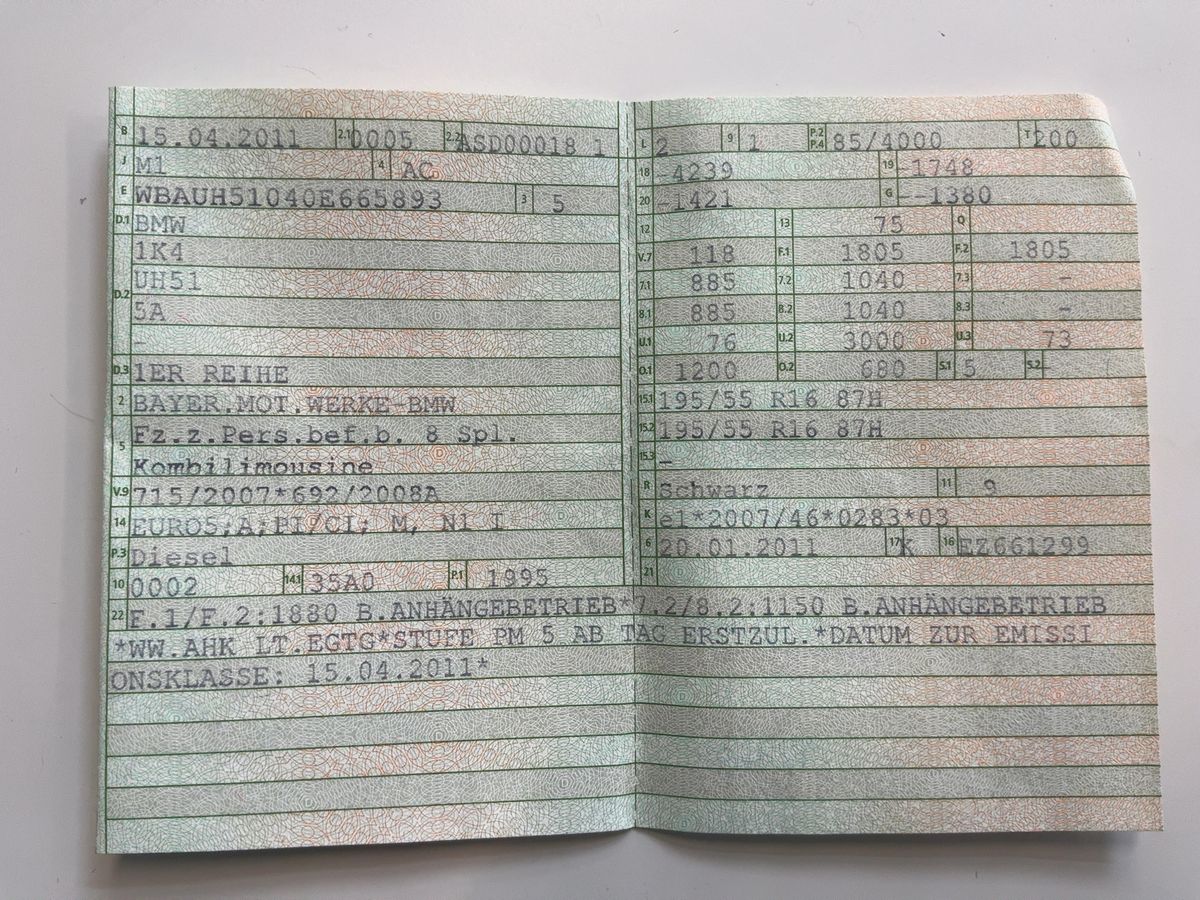 B 15.04.2011 2.1 0005 2.2 ASD00018 1
J M1 4 AC
E WBAUH51040E665893 3 5
D.1 BMW
D.2 1K4
UH51
5A
-
D.3 1ER REIHE
2 BAYER.MOT.WERKE-BMW
5 Fz.z.Pers.bef.b. 8 Spl.
Kombilimousine
V.9 715/2007*692/2008A
14 EURO5;A;PI/CI; M, N1 I
P.3 Diesel
10 0002 14.1 35A0 P.1 1995
L 2 9 1 P.2 P.4 85/4000 T 200
18 -4239 19 -1748
20 -1421 G --1380
12 13 75 Q
V.7 118 F.1 1805 F.2 1805
7.1 885 7.2 1040 7.3 -
8.1 885 8.2 1040 8.3 -
U.1 76 U.2 3000 U.3 73
O.1 1200 O.2 680 S.1 5 S.2 -
15.1 195/55 R16 87H
15.2 195/55 R16 87H
15.3 -
R Schwarz 11 9
K e1*2007/46*0283*03
6 20.01.2011 17 K 16 EZ661299
21
22 F.1/F.2:1880 B.ANHÄNGEBETRIEB*7.2/8.2:1150 B.ANHÄNGEBETRIEB
*WW.AHK LT.EGTG*STUFE PM 5 AB TAG ERSTZUL.*DATUM ZUR EMISSI
ONSKLASSE: 15.04.2011*